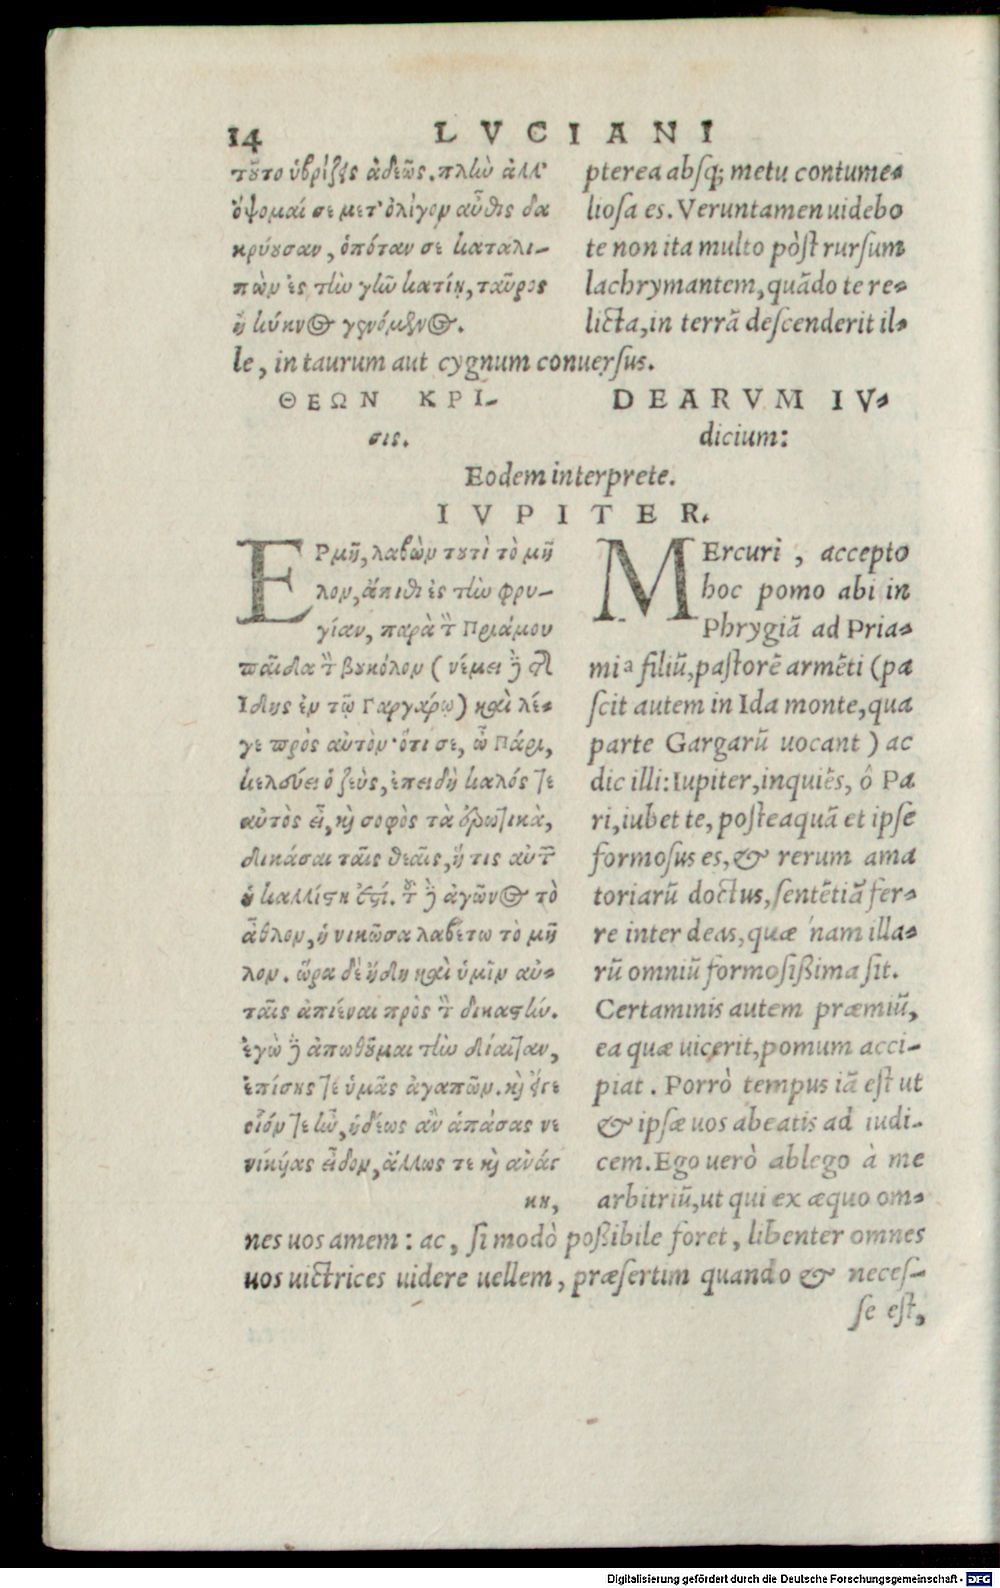 14 LVCIANI
τȣ͂το ὑβρίζεις ἀδεῶς. πλὴν ἀλλ'
ὄψομαί σε μετ' ὀλίγον αὖθις δα
κρύȣσαν, ὁπόταν σε καταλι-
πὼν ἐς τὴν γῆν κατίῃ, ταῦρος
ἢ κύκνος γενόμενος.
pterea absq; metu contume-
liosa es. Veruntamen uidebo
te non ita multo pòst rursum
lachrymantem, quãdo te re-
licta, in terrã descenderit il-
le, in taurum aut cygnum conuersus.
ΘΕΩΝ ΚΡΙ-
σις.
DEARVM IV-
dicium:
Eodem interprete.
IVPITER.
ΕΡμῆ, λαβὼν τȣτὶ τὸ μῆ
λον, ἄπιθι ἐς τὴν φρυ-
γίαν, παρὰ τὸν Πριάμου
παῖδα τὸν βȣκόλον (νέμει δὲ τῆς
Ἴδης ἐν τῷ Γαργάρῳ) καὶ λέ-
γε πρὸς αὐτὸν· ὅτι σε, ὦ Πάρι,
κελεύει ὁ ζεὺς, ἐπειδὴ καλός τε
αὐτὸς εἶ, καὶ σοφὸς τὰ ἐρωτικὰ,
δικάσαι ταῖς θεαῖς, ἥ τις αὐτῶν
ἡ καλλίστη ἐστί. τοῦ δὲ ἀγῶνος τὸ
ἆθλον, ἡ νικῶσα λαβέτω τὸ μῆ
λον. ὥρα δὲ ἤδη καὶ ὑμῖν αὐ-
ταῖς ἀπιέναι πρὸς τὸν δικαστήν.
ἐγὼ γὰρ ἀπωθȣ͂μαι τὴν δίαιταν,
ἐπίσης τε ὑμᾶς ἀγαπῶν. καὶ εἴγε
οἷόν τε ἦν, ἡδέως ἂν ἁπάσας νε
νικηκυίας εἶδον, ἄλλως τε καὶ ἀνάγ
κη,
MErcuri, accepto
hoc pomo abi in
Phrygiã ad Pria-
mi a filiũ, pastorẽ armẽti (pa
scit autem in Ida monte, qua
parte Gargarũ uocant) ac
dic illi: Iupiter, inquiẽs, ô Pa
ri, iubet te, posteaquã et ipse
formosus es, & rerum ama
toriarũ doctus, sentẽtiã fer-
re inter deas, quæ nam illa-
rũ omniũ formosißima sit.
Certaminis autem præmiũ,
ea quæ uicerit, pomum acci-
piat. Porrò tempus iã est ut
& ipsæ uos abeatis ad iudi-
cem. Ego uerò ablego à me
arbitriũ, ut qui ex æquo om-
nes uos amem: ac, si modò poßibile foret, libenter omnes
uos uictrices uidere uellem, præsertim quando & neces-
se est,
Digitalisierung gefördert durch die Deutsche Forschungsgemeinschaft - DFG